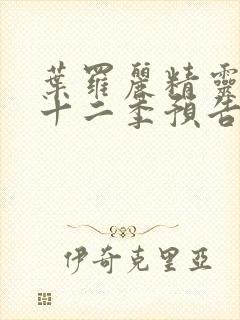 葉羅麗精靈
十二季預告
伊奇克里亞